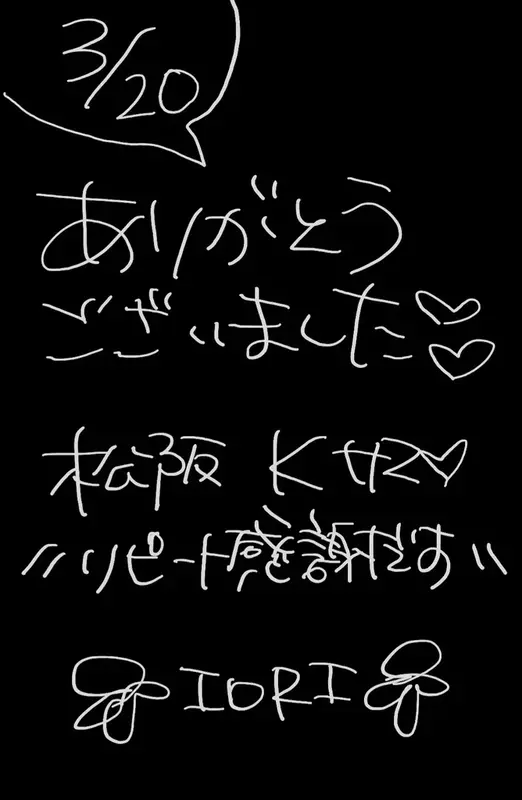 3/20
ありがとう
ございました♡♡
松阪 Kサマ♡
〃リピート感謝だす〃
IORI